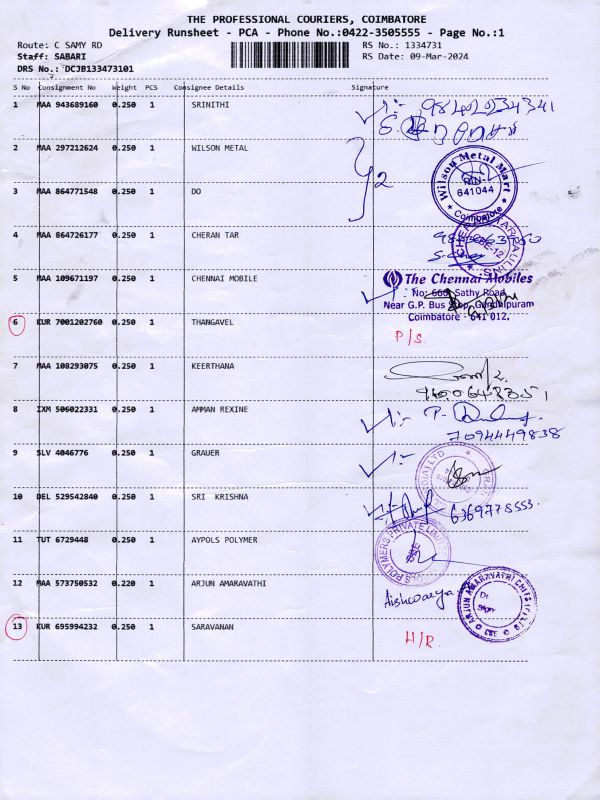 THE PROFESSIONAL COURIERS, COIMBATORE
Delivery Runsheet - PCA - Phone No.:0422-3505555 - Page No.:1
Route: C SAMY RD RS No.: 1334731
Staff: SABARI RS Date: 09-Mar-2024
DRS No.: DCJB133473101
S No Consignment No Weight PCS Consignee Details Signature
1 MAA 943689160 0.250 1 SRINITHI
2 MAA 297212624 0.250 1 WILSON METAL
Wilson Metal Mart
641044
Coimbatore
3 MAA 864771548 0.250 1 DO
4 MAA 864726177 0.250 1 CHERAN TAR
5 MAA 109671197 0.250 1 CHENNAI MOBILE
The Chennai Mobiles
No: 666, Sathy Road,
Near G.P. Bus Stop, Gandhipuram
Coimbatore - 641 012.
6 KUR 7001202760 0.250 1 THANGAVEL P/S.
7 MAA 108293075 0.250 1 KEERTHANA
8 IXM 506022331 0.250 1 AMMAN REXINE
7094449838
9 SLV 4046776 0.250 1 GRAUER
10 DEL 529542840 0.250 1 SRI KRISHNA
6369778553.
11 TUT 6729448 0.250 1 AYPOLS POLYMER
POLYMERS PRIVATE LIMITED
12 MAA 573750532 0.220 1 ARJUN AMARAVATHI
Aishwarya
ARJUN AMARAVATHI CHITS (P) LTD
CBE
13 KUR 695994232 0.250 1 SARAVANAN H/R